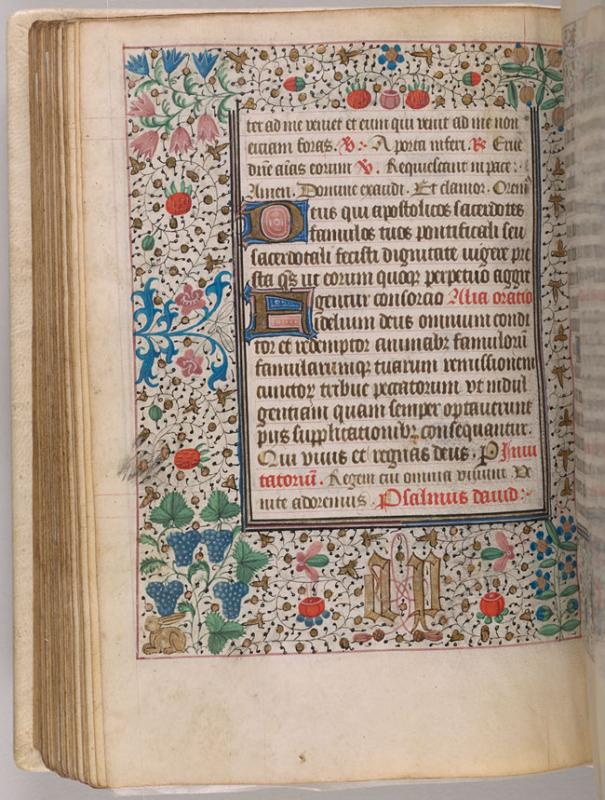 ter ad me veniet et eum qui venit ad me non
eiciam foras. V. A porta inferi. R. Erue
dñe aīas eorum V. Requiescant in pace.
Amen. Domine exaudi. Et clamor. Orem
Deus qui apostolicos sacerdotes
famulos tuos pontificali seu
sacerdotali fecisti dignitate vigere pre
sta qs ut eorum quoqz perpetuo aggre
gentur consorcio Alia oratio
Fidelium deus omnium condi
tor et redemptor animabz famuloru
famularumqz tuarum remissionem
cunctoz tribue peccatorum vt indul
gentiam quam semper optauerunt
piis supplicationibz consequantur.
Qui viuis et regnas deus. P Inui
tatoriu. Regem cui omnia viuunt Ve
nite adoremus. Psalmus dauid: